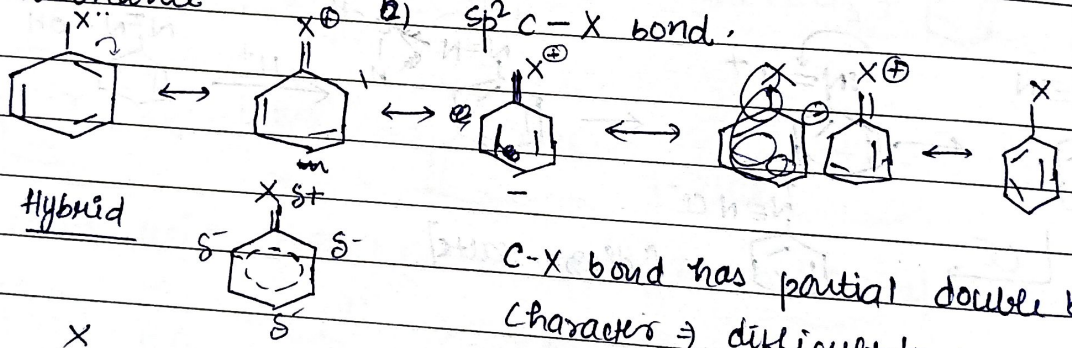 2) sp² C - X bond.
X:
X⊕
X⊕
X⊕
X
Hybrid
X δ+
δ⁻ δ⁻
δ⁻
C-X bond has partial double
Character ⇒
X